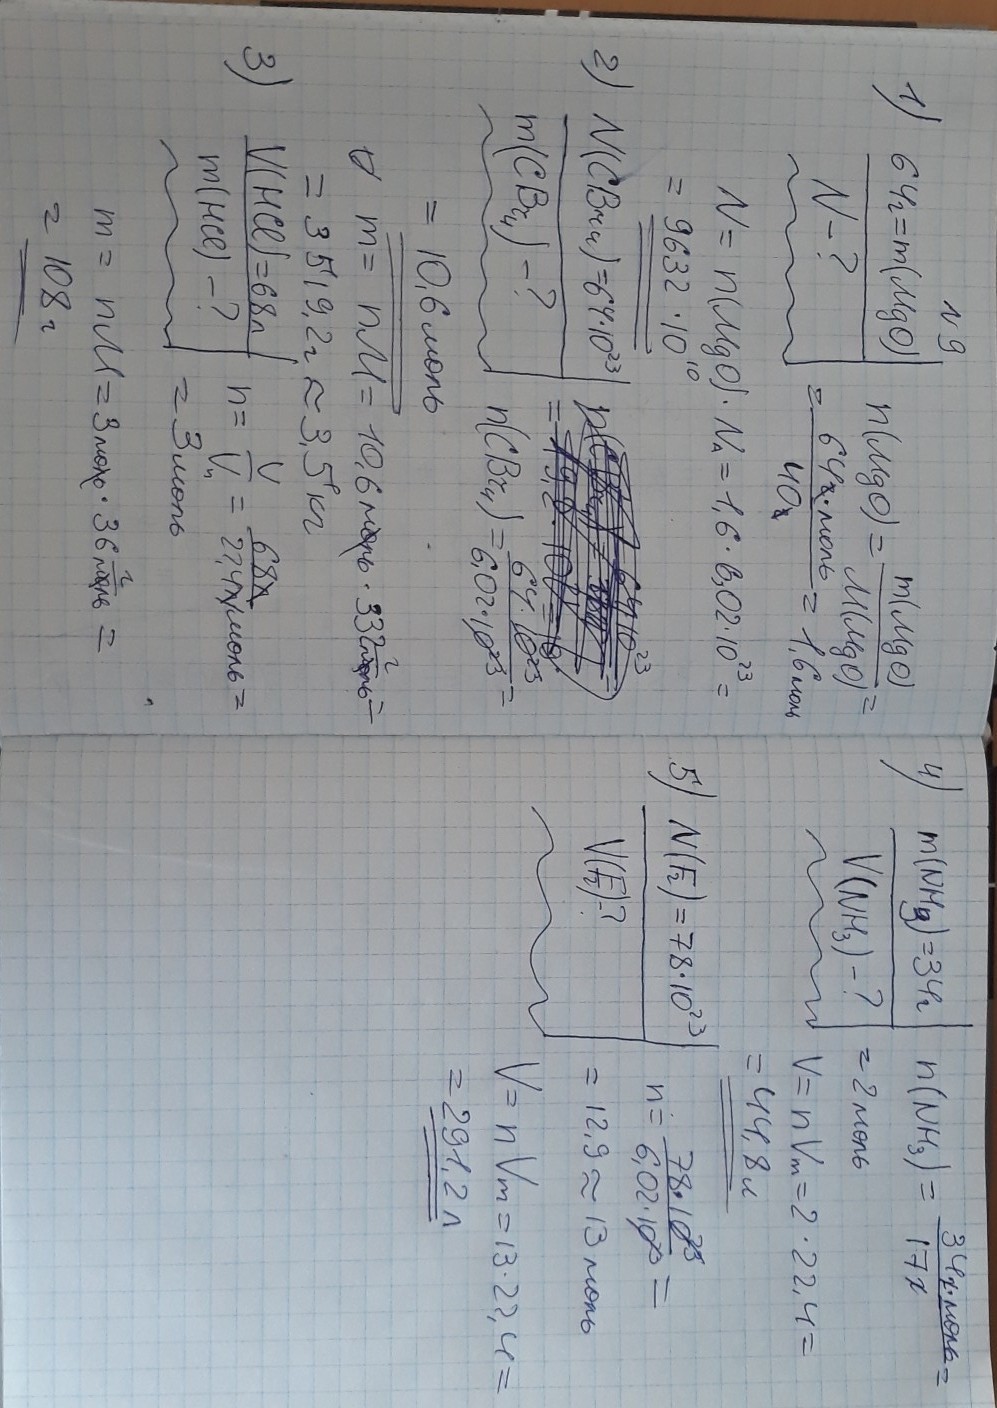 N 9
1) 64г = m(MgO)
N - ?
n(MgO) = m(MgO) / M(MgO) =
= 64г·моль / 40г = 1,6 моль
N = n(MgO) · Nₐ = 1,6 · 6,02·10²³ =
= 9632 · 10²⁰
2) N(CBr₄) = 64·10²³
m(CBr₄) - ?
n(CBr₄) = 64·10²³ / 6,02·10²³ =
= 10,6 моль
m = nM = 10,6 моль · 332 г/моль =
= 3519,2г ≈ 3,5 кг
3) V(HCl) = 68л
m(HCl) - ?
n = V / Vₘ = 68л / 22,4л/моль =
= 3 моль
m = nM = 3 моль · 36 г/моль =
= 108г
4) m(NH₃) = 34г
V(NH₃) - ?
n(NH₃) = 34г·моль / 17г =
= 2 моль
V = nVm = 2 · 22,4 =
= 44,8л
5) N(F₂) = 78·10²³
V(F₂) - ?
n = 78·10²³ / 6,02·10²³ =
= 12,9 ≈ 13 моль
V = nVm = 13·22,4 =
= 291,2л